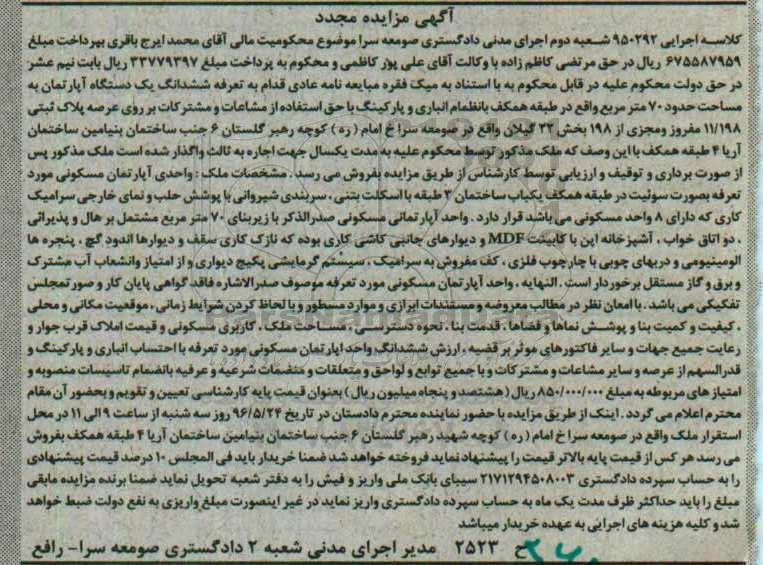 آگهی مزایده مجدد
کلاسه اجرایی ۹۵۰۲۹۲ شعبه دوم اجرای مدنی دادگستری صومعه سرا موضوع محکومیت مالی آقای محمد ایرج باقری بپرداخت مبلغ
۶۷۵۵۸۷۹۵۹ ریال در حق مرتضی کاظم زاده با وکالت آقای علی پور کاظمی و محکوم به پرداخت مبلغ ۳۳۷۷۹۳۹۷ ریال بابت نیم عشر
در حق دولت محکوم علیه در قابل محکوم به با استناد به میک فقره مبایعه نامه عادی قدام به تعرفه ششدانگ یک دستگاه آپارتمان به
مساحت حدود ۷۰ متر مربع واقع در طبقه همکف بانظمام انباری و پارکینگ با حق استفاده از مشاعات و مشترکات بر روی عرصه پلاک ثبتی
۱۱/۱۹۸ مفروز ومجزی از ۱۹۸ بخش ۲۳ گیلان واقع در صومعه سرا خ امام ( ره ) کوچه رهبر گلستان ۶ جنب ساختمان بنیامین ساختمان
آریا ۴ طبقه همکف با این وصف که ملک مذکور توسط محکوم علیه به مدت یکسال جهت اجاره به ثالث واگذار شده است ملک مذکور پس
از صورت برداری و توقیف و ارزیابی توسط کارشناس از طریق مزایده بفروش می رسد . مشخصات ملک : واحدی آپارتمان مسکونی مورد
تعرفه بصورت سوئیت در طبقه همکف یکباب ساختمان ۴ طبقه با اسکلت بتنی ، سربندی شیروانی با پوشش حلب و نمای خارجی سرامیک
کاری که دارای ۸ واحد مسکونی می باشد قرار دارد . واحد آپارتمانی مسکونی صدرالذکر با زیربنای ۷۰ متر مربع مشتمل بر هال و پذیرائی
، دو اتاق خواب ، آشپزخانه اپن با کابینت MDF و دیوارهای جانبی کاشی کاری بوده که نازک کاری سقف و دیوارها اندود گچ ، پنجره ها
الومینیومی و دربهای چوبی با چارچوب فلزی ، کف مفروش به سرامیک ، سیستم گرمایشی پکیج دیواری و از امتیاز وانشعاب آب مشترک
و برق و گاز مستقل برخوردار است . النهایه ، واحد آپارتمان مسکونی مورد تعرفه موصوف صدرالاشاره فاقد گواهی پایان کار و صورتمجلس
تفکیکی می باشد . با امعان نظر در مطالب معروضه و مستندات ابرازی و موارد مسطور و با لحاظ کردن شرایط زمانی ، موقعیت مکانی و محلی
، کیفیت و کمیت بنا و پوشش نماها و فضاها ، قدمت بنا ، نحوه دسترسی ، مساحت ملک ، کاربری مسکونی و قیمت املاک قرب جوار و
رعایت جمیع جهات و سایر فاکتورهای موثر بر قضیه ، ارزش ششدانگ واحد اپارتمان مسکونی مورد تعرفه با احتساب انباری و پارکینگ و
قدرالسهم از عرصه و سایر مشاعات و مشترکات و با جمیع توابع و لواحق و متعلقات و منضمات شرعیه و عرفیه بانضمام تاسیسات منصوبه و
امتیاز های مربوطه به مبلغ ۸۵۰/۰۰۰/۰۰۰ ریال ( هشتصد و پنجاه میلیون ریال ) بعنوان قیمت پایه کارشناسی تعیین و تقویم و بحضور آن مقام
محترم اعلام می گردد . اینک از طریق مزایده با حضور نماینده محترم دادستان در تاریخ ۹۶/۵/۲۴ روز سه شنبه از ساعت ۹ الی ۱۱ در محل
استقرار ملک واقع در صومعه سرا خ امام ( ره ) کوچه شهید رهبر گلستان ۶ جنب ساختمان بنیامین ساختمان آریا ۴ طبقه همکف بفروش
می رسد هر کس از قیمت پایه بالاتر قیمت را پیشنهاد نماید فروخته خواهد شد ضمنا خریدار باید فی المجلس ۱۰ درصد قیمت پیشنهادی
را به حساب سپرده دادگستری ۲۱۷۱۲۹۴۵۰۸۰۰۳ سیبای بانک ملی واریز و فیش را به دفتر شعبه تحویل نماید ضمنا برنده مزایده مابقی
مبلغ را باید حداکثر ظرف مدت یک ماه به حساب سپرده دادگستری واریز نماید در غیر اینصورت مبلغ واریزی به نفع دولت ضبط خواهد
شد و کلیه هزینه های اجرایی به عهده خریدار میباشد
ح ۲۵۲۳ مدیر اجرای مدنی شعبه ۲ دادگستری صومعه سرا- رافع